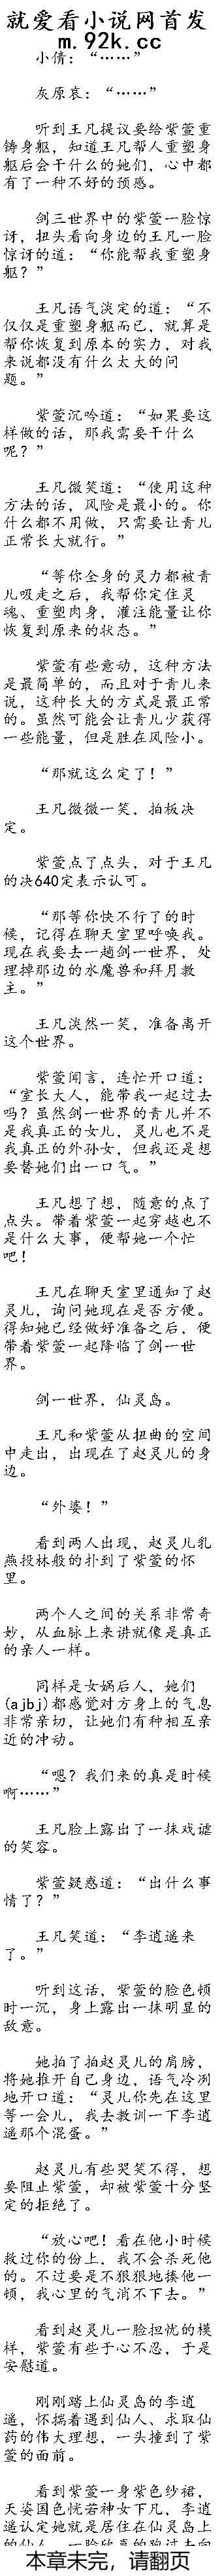 就爱看小说网首发
m.92k.cc
小倩：“……”
灰原哀：“……”
听到王凡提议要给紫萱重
铸身躯，知道王凡帮人重塑身
躯后会干什么的她们，心中都
有了一种不好的预感。
剑三世界中的紫萱一脸惊
讶，扭头看向身边的王凡一脸
惊讶的道：“你能帮我重塑身
躯？”
王凡语气淡定的道：“不
仅仅是重塑身躯而已，就算是
帮你恢复到原本的实力，对我
来说都没有什么太大的问
题。”
紫萱沉吟道：“如果要这
样做的话，那我需要干什么
呢？”
王凡微笑道：“使用这种
方法的话，风险是最小的。你
什么都不用做，只需要让青儿
正常长大就行。”
“等你全身的灵力都被青
儿吸走之后，我帮你定住灵
魂、重塑肉身，灌注能量让你
恢复到原来的状态。”
紫萱有些意动，这种方法
是最简单的，而且对于青儿来
说，这种长大的方式是最正常
的。虽然可能会让青儿少获得
一些能量，但是胜在风险小。
“那就这么定了！”
王凡微微一笑，拍板决
定。
紫萱点了点头，对于王凡
的决640定表示认可。
“那等你快不行了的时
候，记得在聊天室里呼唤我。
现在我要去一趟剑一世界，处
理掉那边的水魔兽和拜月教
主。”
王凡淡然一笑，准备离开
这个世界。
紫萱闻言，连忙开口道：
“室长大人，能带我一起过去
吗？虽然剑一世界的青儿并不
是我真正的女儿，灵儿也不是
我真正的外孙女，但我还是想
要替她们出一口气。”
王凡想了想，随意的点了
点头。带着紫萱一起穿越也不
是什么大事，便帮她一个忙
吧！
王凡在聊天室里通知了赵
灵儿，询问她现在是否方便。
得知她已经做好准备之后，便
带着紫萱一起降临了剑一世
界。
剑一世界，仙灵岛。
王凡和紫萱从扭曲的空间
中走出，出现在了赵灵儿的身
边。
“外婆！”
看到两人出现，赵灵儿乳
燕投林般的扑到了紫萱的怀
里。
两个人之间的关系非常奇
妙，从血脉上来讲就像是真正
的亲人一样。
同样是女娲后人，她们
(ajbj)都感觉对方身上的气息
非常亲切，让她们有种相互亲
近的冲动。
“嗯？我们来的真是时候
啊……”
王凡脸上露出了一抹戏谑
的笑容。
紫萱疑惑道：“出什么事
情了？”
王凡笑道：“李逍遥来
了。”
听到这话，紫萱的脸色顿
时一沉，身上露出一抹明显的
敌意。
她拍了拍赵灵儿的肩膀，
将她推开自己身边，语气冷冽
地开口道：“灵儿你先在这里
等一会儿，我去教训一下李逍
遥那个混蛋。”
赵灵儿有些哭笑不得，想
要阻止紫萱，却被紫萱十分坚
定的拒绝了。
“放心吧！看在他小时候
救过你的份上，我不会杀死他
的。不过要是不狠狠地揍他一
顿，我心里的气消不下去。”
看到赵灵儿一脸担忧的模
样，紫萱有些于心不忍，于是
安慰道。
刚刚踏上仙灵岛的李逍
遥，怀揣着遇到仙人、求取仙
药的伟大理想，一头撞到了紫
萱的面前。
看到紫萱一身紫色纱裙，
天姿国色恍若神女下凡，李逍
遥认定她就是居住在仙灵岛上
的仙人，一脸欣喜的跑过去向
本章未完，请翻页